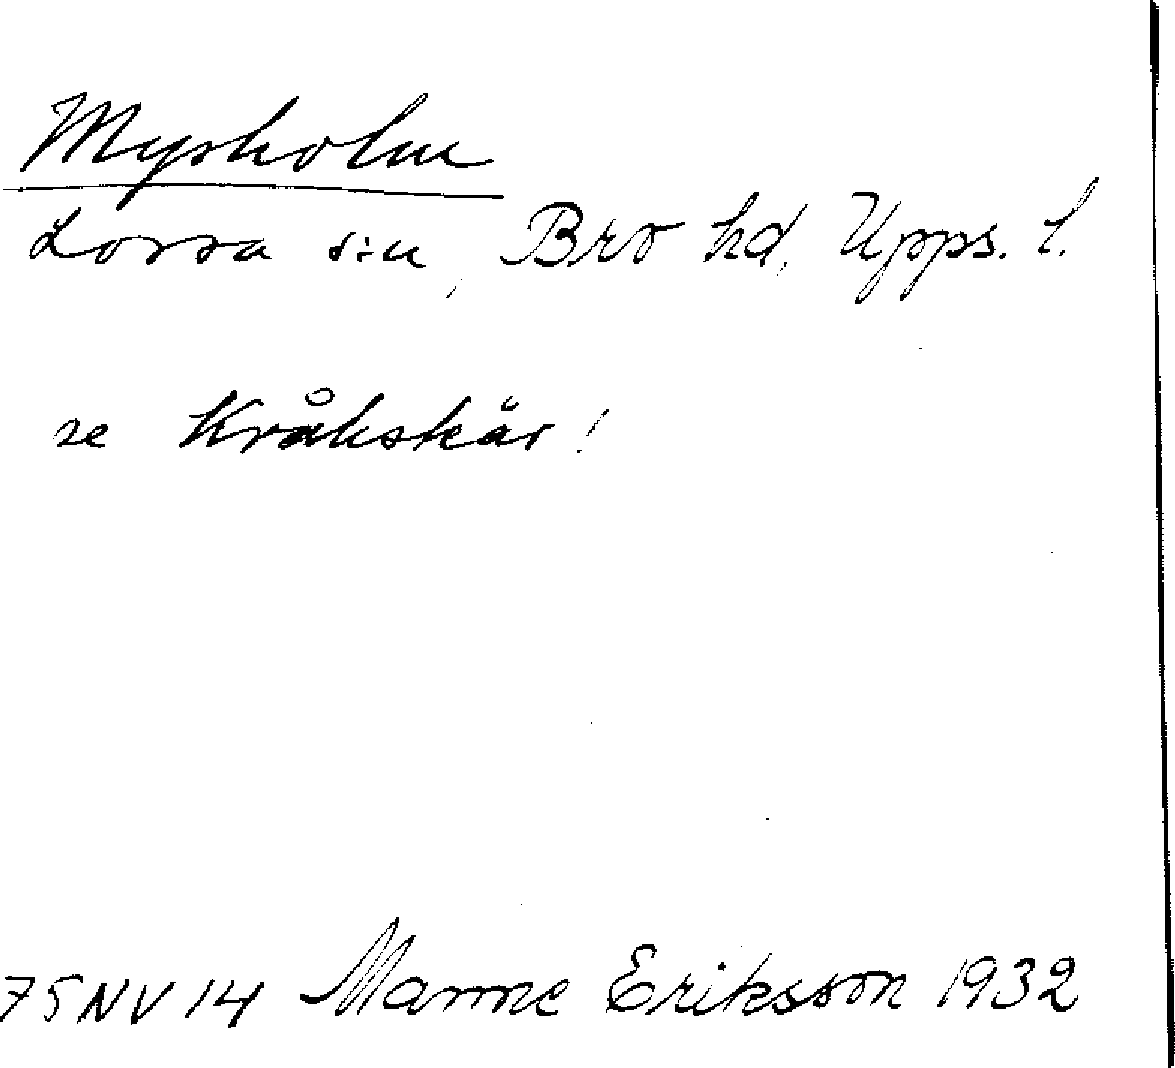 Mysholm
Lossa s:n, Bro hd, Upps. l.
se Kråkskär!
75NV14 Manne Eriksson 1932